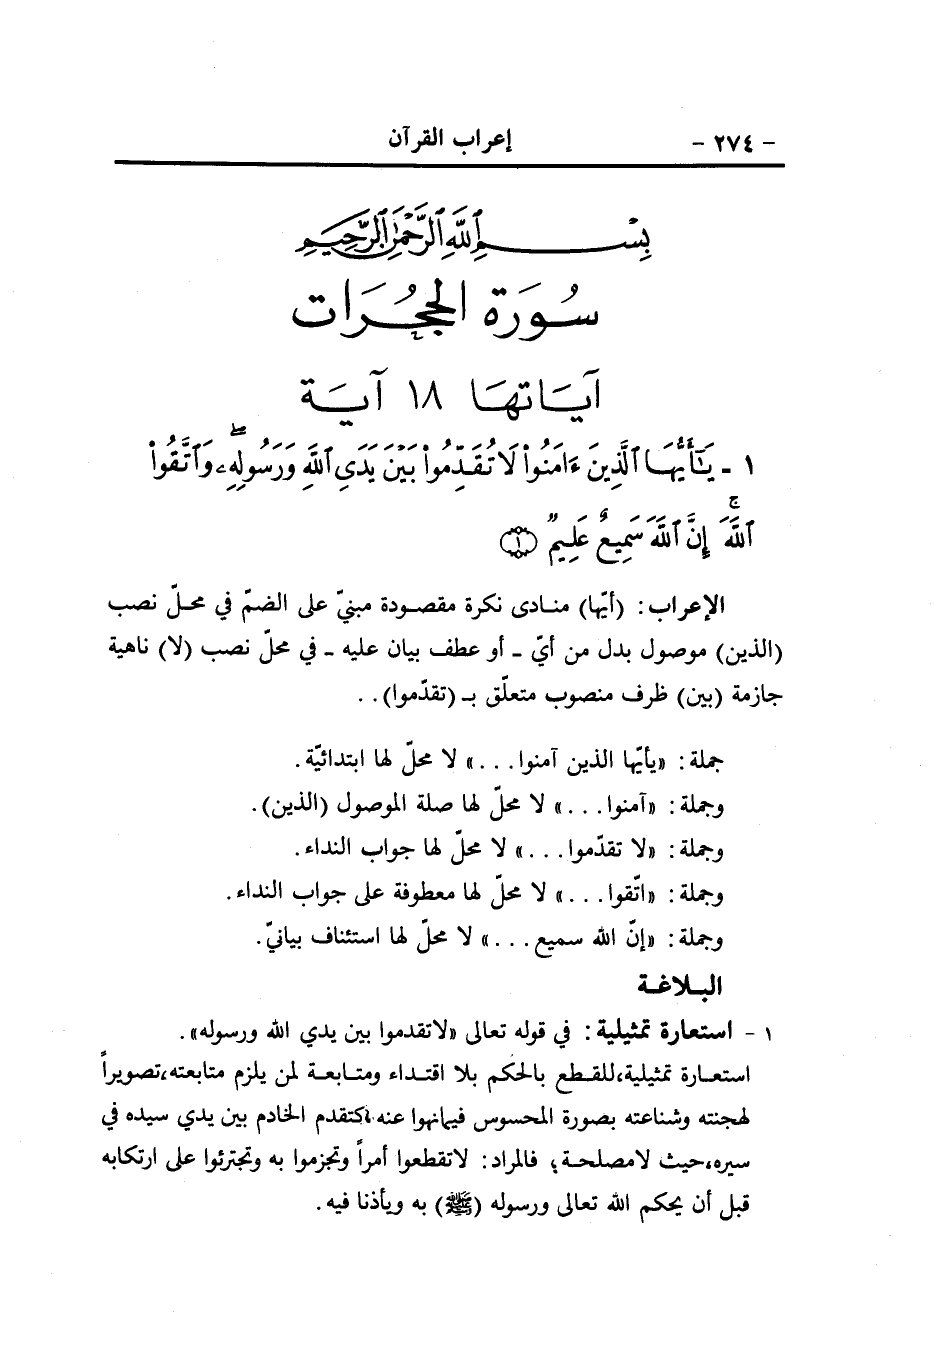 - ٢٧٤ - إعراب القرآن
بِسْمِ ٱللَّهِ ٱلرَّحْمَٰنِ ٱلرَّحِيمِ
سُورَة الحُجُرَات
آيَاتهَا ١٨ آيَة
١ - يَٰٓأَيُّهَا ٱلَّذِينَ ءَامَنُوا۟ لَا تُقَدِّمُوا۟ بَيْنَ يَدَىِ ٱللَّهِ وَرَسُولِهِۦ ۖ وَٱتَّقُوا۟
ٱللَّهَ ۚ إِنَّ ٱللَّهَ سَمِيعٌ عَلِيمٌ ۝١
الإعراب: (أيّها) منادى نكرة مقصودة مبنيّ على الضمّ في محلّ نصب
(الذين) موصول بدل من أيّ - أو عطف بيان عليه - في محلّ نصب (لا) ناهية
جازمة (بين) ظرف منصوب متعلّق بـ (تقدّموا)..
جملة: «يأيّها الذين آمنوا...» لا محلّ لها ابتدائيّة.
وجملة: «آمنوا...» لا محلّ لها صلة الموصول (الذين).
وجملة: «لا تقدّموا...» لا محلّ لها جواب النداء.
وجملة: «اتّقوا...» لا محلّ لها معطوفة على جواب النداء.
وجملة: «إنّ الله سميع...» لا محلّ لها استئناف بيانيّ.
البلاغة
١ - استعارة تمثيلية: في قوله تعالى «لاتقدموا بين يدي الله ورسوله».
استعارة تمثيلية، للقطع بالحكم بلا اقتداء ومتابعة لمن يلزم متابعته، تصويراً
لهجنته وشناعته بصورة المحسوس فيمانهوا عنه، كتقدم الخادم بين يدي سيده في
سيره، حيث لامصلحة؛ فالمراد: لاتقطعوا أمراً وتجزموا به وتجترئوا على ارتكابه
قبل أن يحكم الله تعالى ورسوله (ﷺ) به ويأذنا فيه.